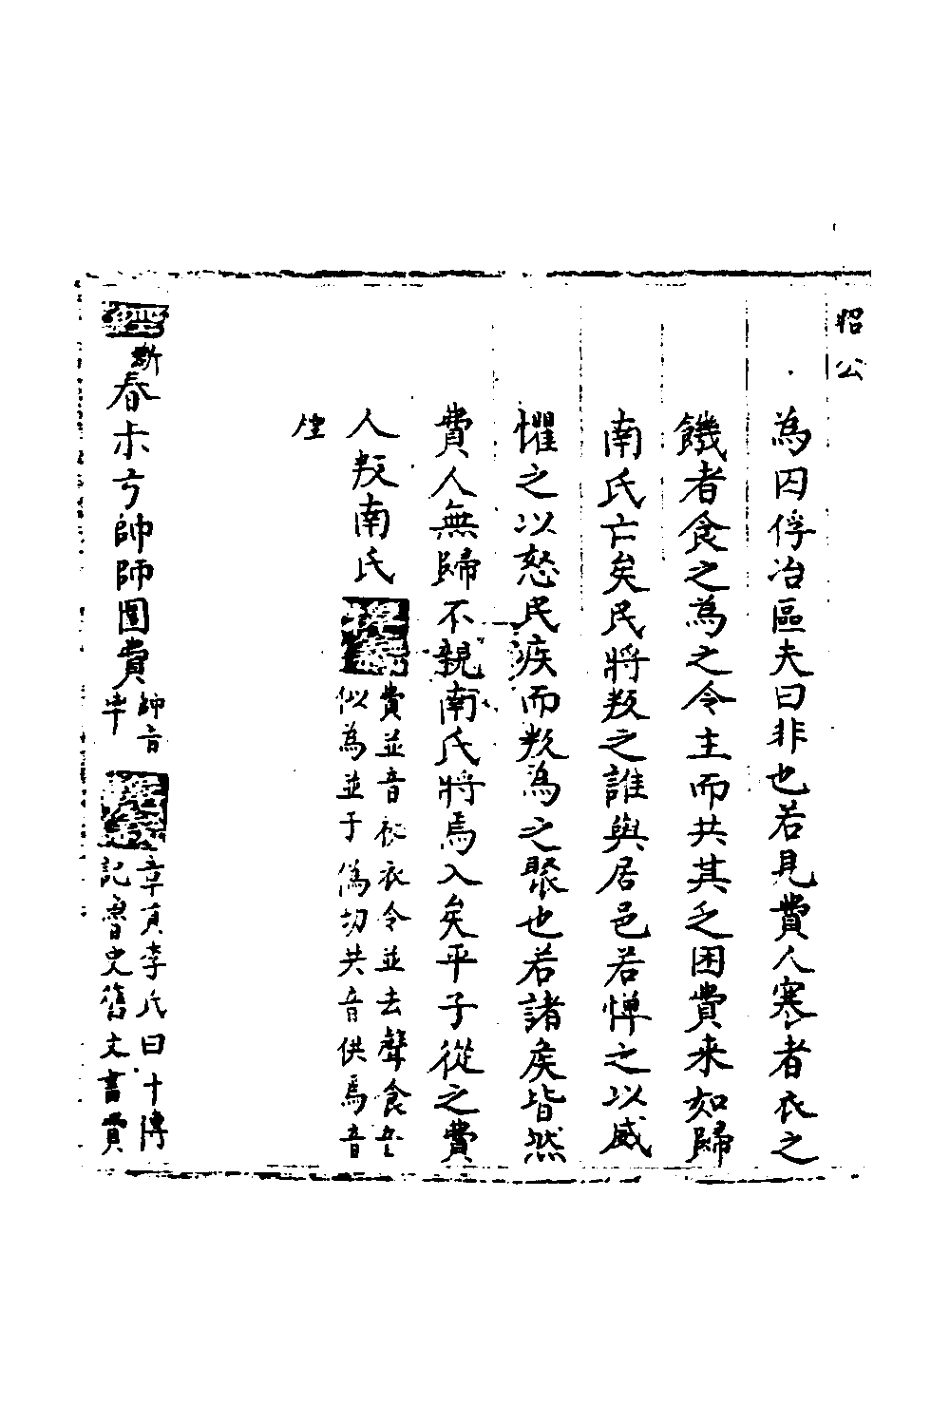 昭公
為囚俘冶區夫曰非也若見費人寒者衣之
饑者食之為之令主而共其乏困費来如歸
南氏亡矣民將叛之誰與居邑若憚之以威
懼之以怒民疾而叛為之聚也若諸矦皆然
費人無歸不親南氏將焉入矣平子從之費
人叛南氏
費並音祕衣令並去聲食
似為並于偽切共音供焉音
煙
經
春叔弓帥師圍費
帥音
率
章貢李氏曰十
記魯史舊文書費